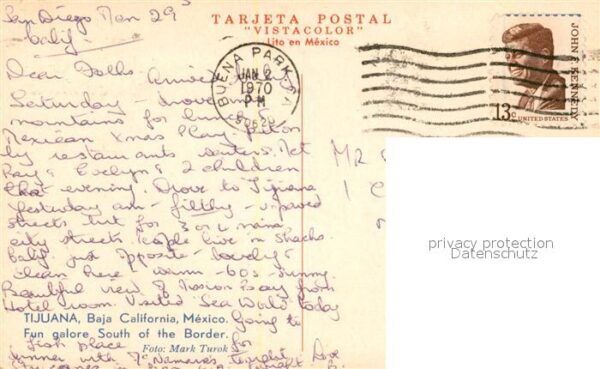 San Diego Mon 29
Calif.
TARJETA POSTAL
"VISTACOLOR"
Lito en México
BUENA PARK, CA
JAN 2
1970
PM
JOHN F. KENNEDY
13c
UNITED STATES
Dear Folks. Arrived
Saturday - drove
mountains for
Mexican Xmas Play put on
by restaurants waiters. Met
Ray & Evelyn & 2 children
that evening. Drove to Tijuana
yesterday am - filthy - unpaved
streets but for 3 or 4 main
city streets. People live in shacks.
Calif just opposite - lovely &
clean here & warm - 60s - sunny.
Beautiful view of Mission Bay from
Hotel room. Visited Sea World today
TIJUANA, Baja California, México.
Fun galore South of the Border.
Foto: Mark Turok
Going to
Fish place for
dinner with McNamaras tonight. Love
MR
privacy protection
Datenschutz